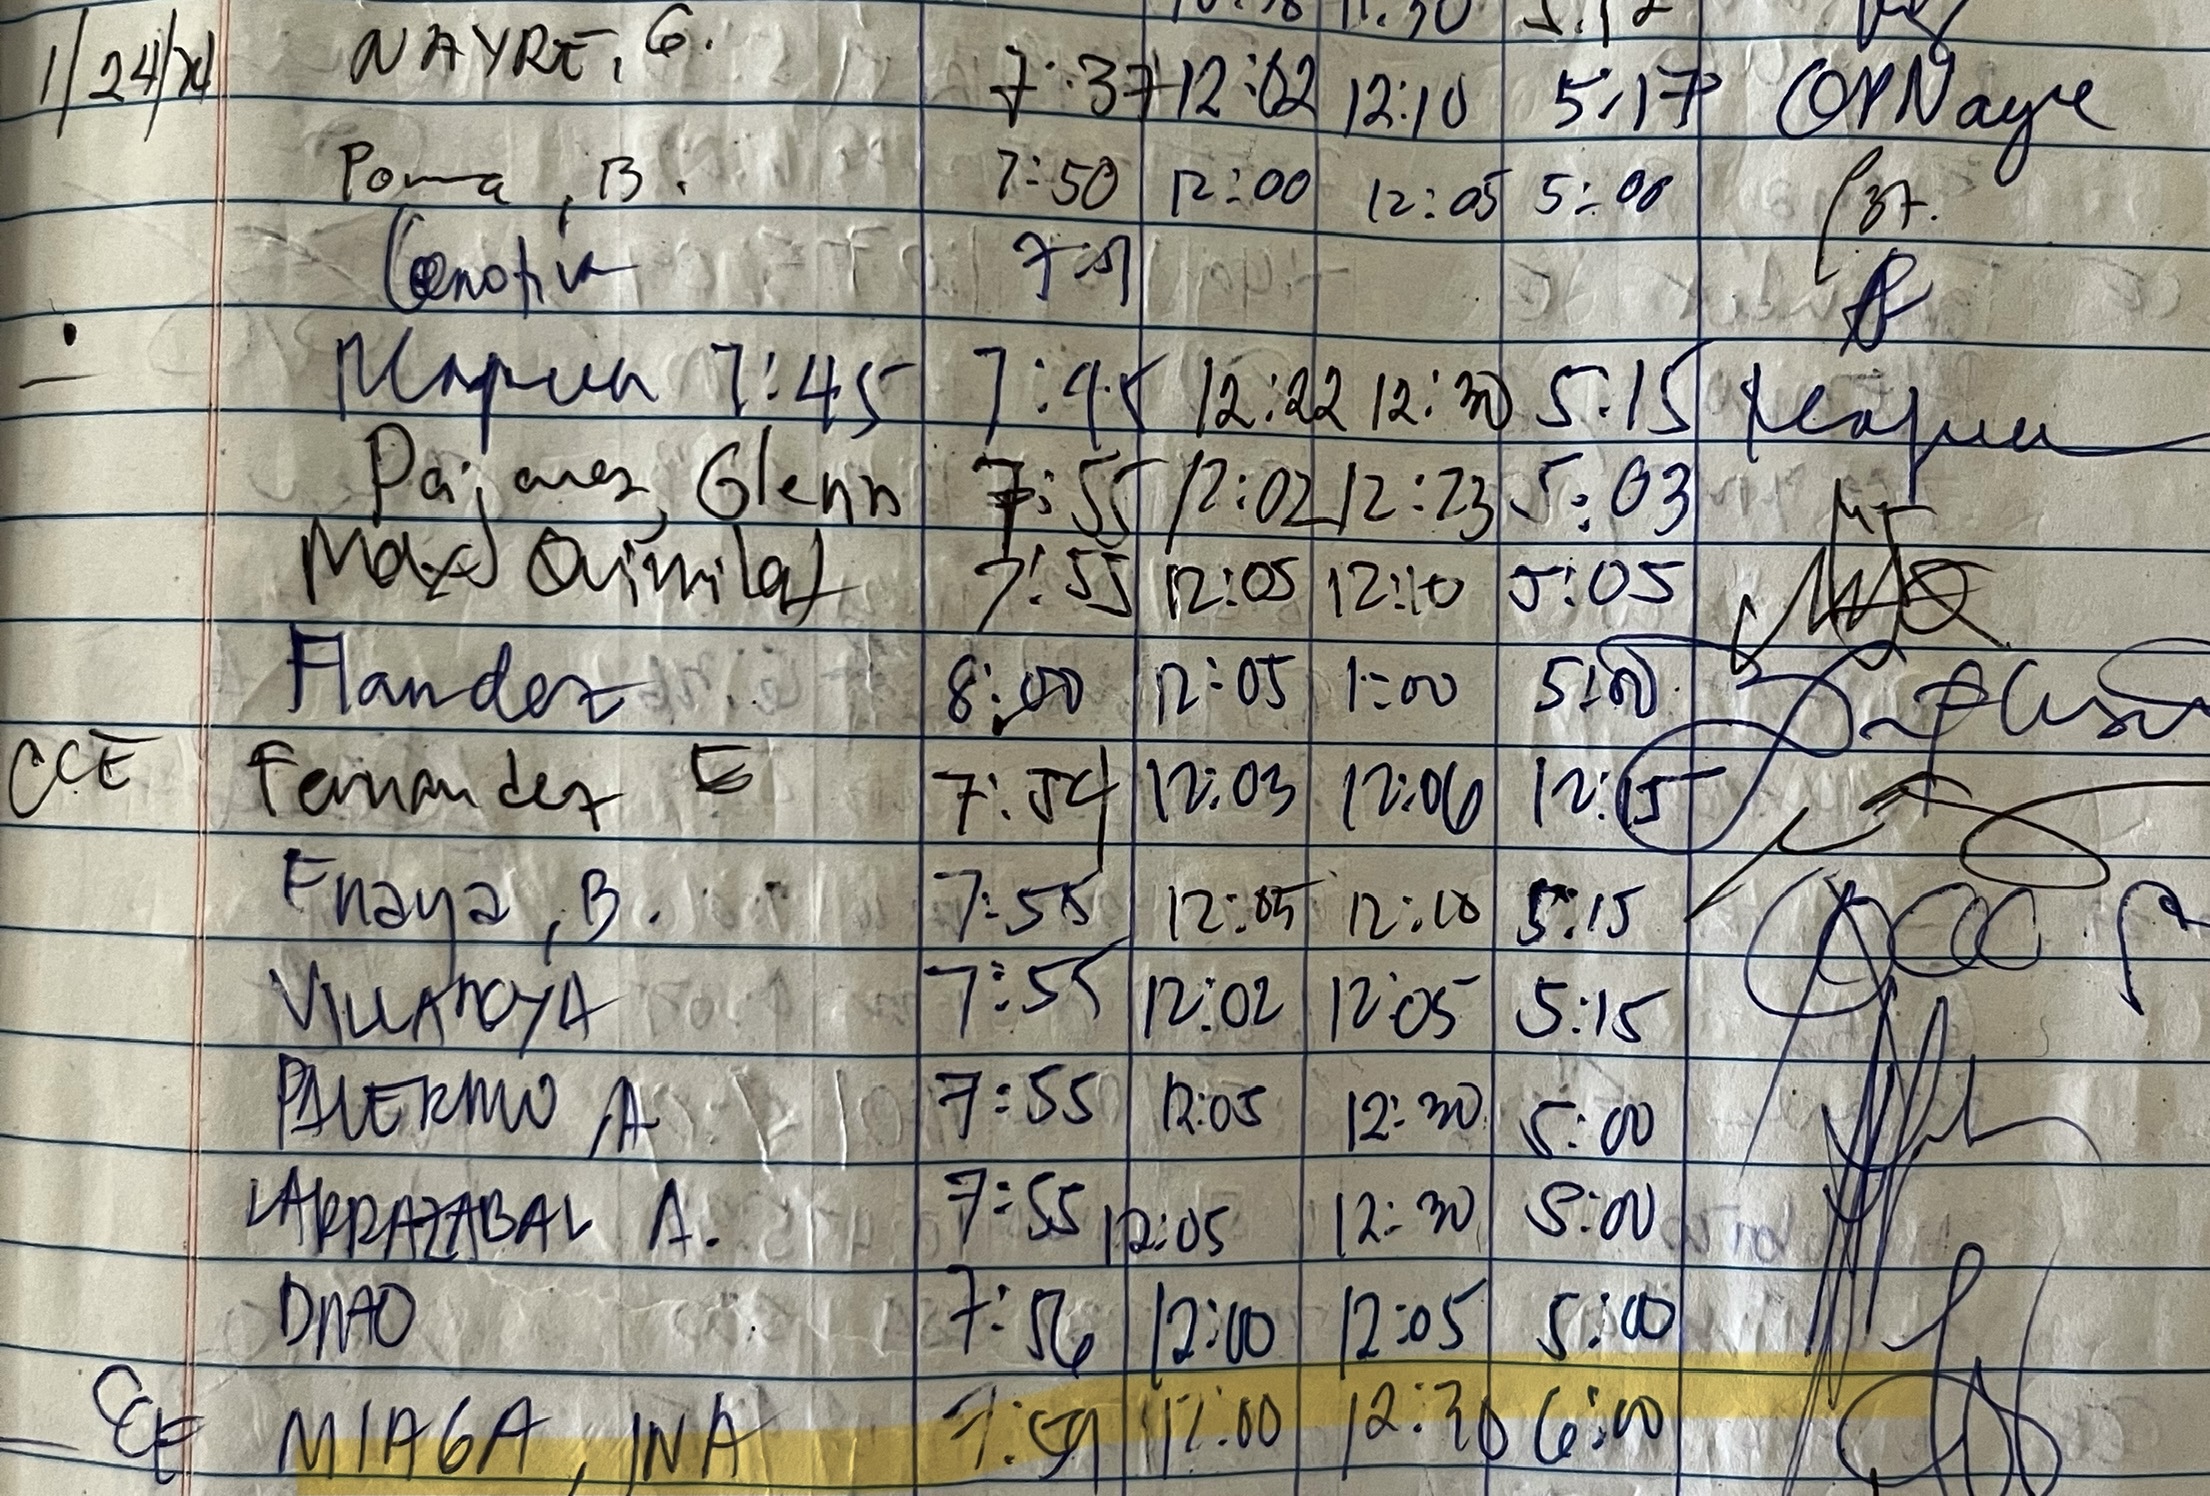 10:58 11:30 5:12
1/24/24 NAYRE, G. 7:37 12:02 12:10 5:17 Nayre
Poma, B. 7:50 12:00 12:05 5:00
7:51
7:45 7:45 12:22 12:30 5:15
Pajares, Glenn 7:55 12:02 12:23 5:03
Max Quimilat 7:55 12:05 12:10 5:05
Flandez 8:00 12:05 1:00 5:00
CCE Fernandez E 7:54 12:03 12:06 12:15
Enaya, B. 7:55 12:05 12:10 5:15
VILLANOYA 7:55 12:02 12:05 5:15
PALERMO, A 7:55 12:05 12:30 5:00
LARRAZABAL A. 7:55 12:05 12:30 5:00
DMAO 7:56 12:00 12:05 5:00
CE MIAGA, JNA 7:59 12:00 12:30 6:00